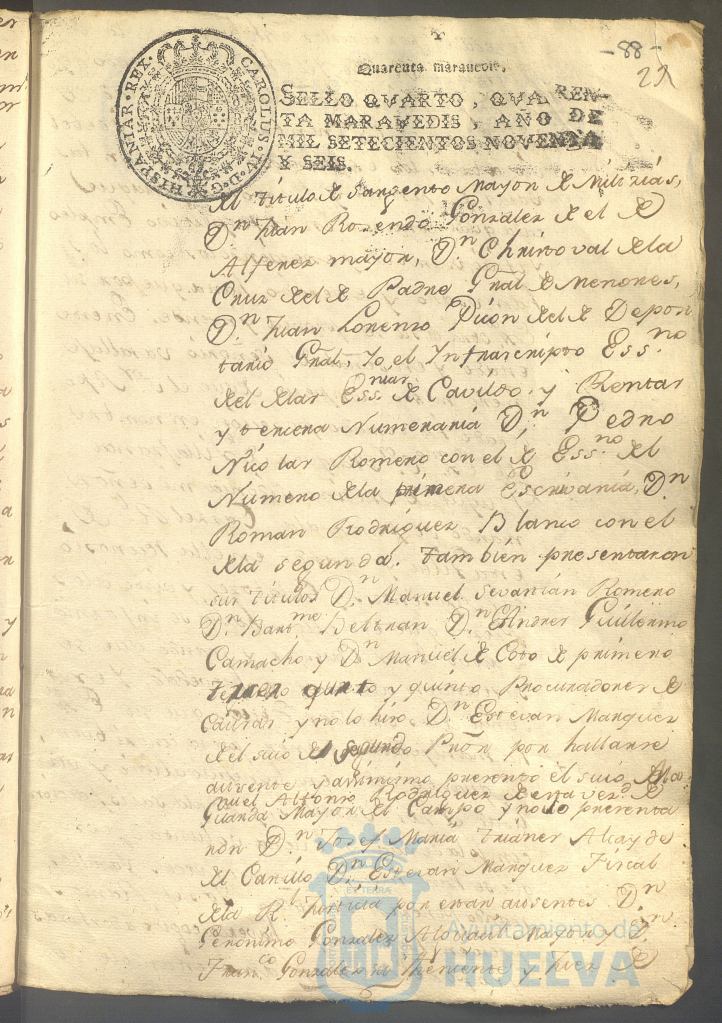 -88-
Quarenta marauedis.
CAROLUS·IV·D·G·HISPANIAR·REX·
SELLO QVARTO, QVAREN-
TA MARAVEDIS, AÑO DE
MIL SETECIENTOS NOVENTA
Y SEIS.
del titulo de Sargento Mayor de Milizias,
Dn Juan Rosendo Gonzalez de el de
Alferez mayor, Dn Christoval de la
Cruz del de Padre Gral de Menores,
Dn Juan Lorenzo Pison del de Depori
tario Gral, Yo el Infraescripto Essno
del de las Essnias de Cavildo, y Rentas
y tercera Numeraria Dn Pedro
Nicolas Romero con el de Essno del
Numero de la primera Escribania, Dn
Roman Rodriguez Blanco con el
de la segunda. tambien presentaron
sus titulos Dn Manuel Sevarian Romero
Dn Bartme Beltran Dn Andres Guillermo
Camacho y Dn Manuel de Coto de primero
tercero quarto y quinto, Procuradores de
causas y no lo hizo Dn Estevan Marquez
del suio de segundo Pror por hallarse
ausente y asimismo presento el suio Ma
nuel Alfonso Rodriguez de esta vezd de
Guarda Mayor del Campo y no lo presenta
ron Dn Josef Maria Trianes Alcayde
del Castillo Dn Estevan Marquez Fiscal
de la Rl Justicia por estar ausentes Dn
Geronimo Gonzalez Alguacil Mayor y Dn
Franco Gonzalez su theniente y Juez de
Ayuntamiento de
HUELVA